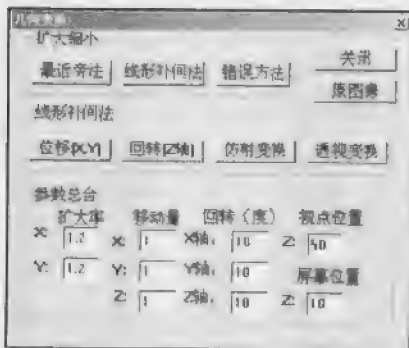 几何变换
扩大缩小
最近旁法 线形补间法 错误方法 关闭
原图象
线形补间法
位移[XY] 回转[Z轴] 仿射变换 透视变换
参数总台
扩大率 移动量 回转（度） 视点位置
X: 1.2 X: 1 X轴: 10 Z: 50
Y: 1.2 Y: 1 Y轴: 10 屏幕位置
Z: 1 Z轴: 10 Z: 10